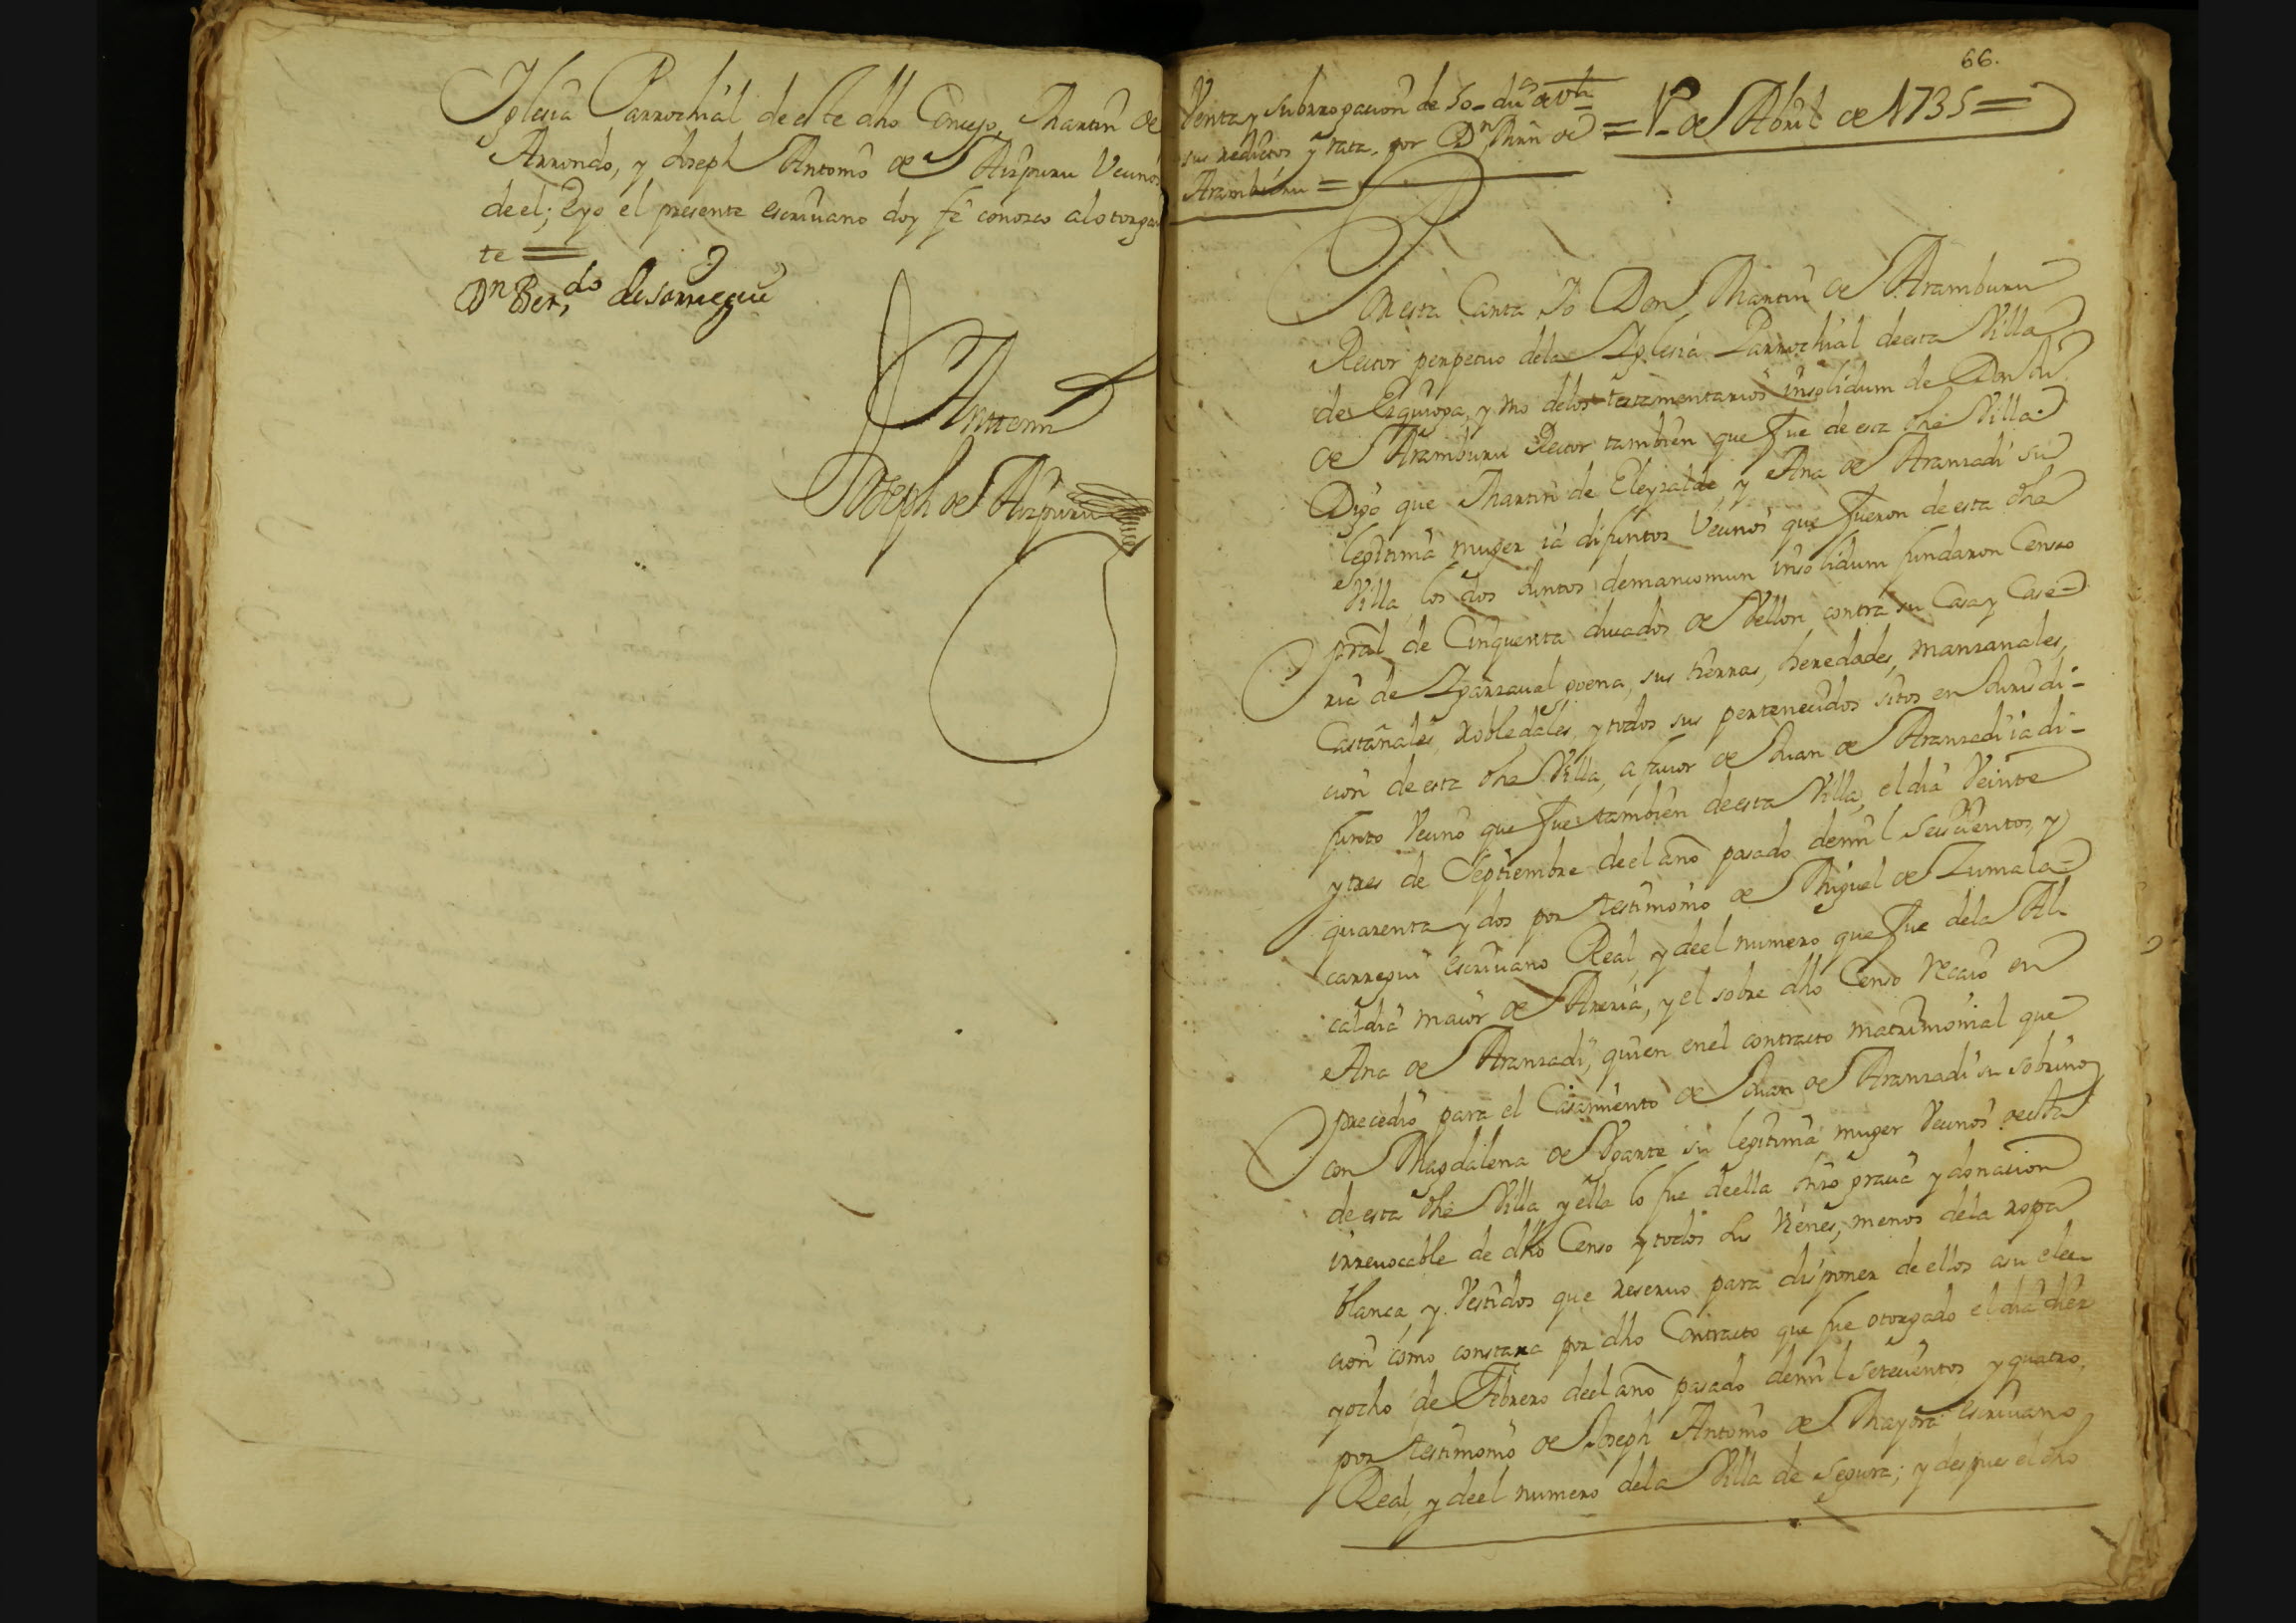 Iglesia Parrochial de este dho Concejo, Martin de
Arrondo, y Joseph Antonio de Aizpuru Vecinos
de el; Eyo el presente escriuano doy fè conozco al otorgan
te =
Dn Ber,do de Jauregui
Antemi
Joseph de Aizpuru
66.
Venta y subrrogacion de 50 duos de vn
sus reditos y rata, por Dn Mrn de
Aramburu =
= 1o de Abril de 1735 =
En esta Carta Yo Don Martin de Aramburu
Rector perpetuo dela Iglesia Parrochial de esta Villa
de Ezquioga, y vno delos testamentarios insolidum de Don Ju
de Aramburu Rector tambien que fue de esta dha Villa
Digo que Martin de Eleyzalde, y Ana de Aranzadi su
legitima muger ià difuntos Vecinos que fueron de esta dha
Villa los dos Juntos demancomun insolidum fundaron Censo
pral de Cinquenta ducados de Vellon contra su Casa y Case=
ria de Igarzaual goena, sus tierras, heredades, manzanales,
Castañales, Robledales, y todos sus pertenecidos sitos en Jurisdi-
cion de esta dha Villa, a fauor de Juan de Aranzadi ia di-
funto Vecino que fue tambien de esta Villa, el dia Veinte
y tres de Septiembre de el año pasado de mil seiscientos, y
quarenta y dos por testimonio de Miguel de Zumala=
carregui escriuano Real, y de el numero que fue dela Al-
caldia maior de Areria, y el sobre dho Censo recaio en
Ana de Aranzadi, quien en el contracto matrimonial que
precedio para el Casamiento de Juan de Aranzadi su sobrino
con Magdalena de Vgarte su legitima muger Vecinos de esta
de esta dha Villa y ella lo fue de ella hizo gracia y donacion
irreuocable de dho Censo y todos sus Vienes, menos dela ropa
blanca, y Vestidos que reseruo para disponer de ellos a su elec-
cion como constara por dho Contracto que fue otorgado el dia diez
y ocho de Febrero de el año pasado de mil setecientos y quatro,
por testimonio de Joseph Antonio de Mayora escriuano
Real, y de el numero dela Villa de Segura; y despues el dho